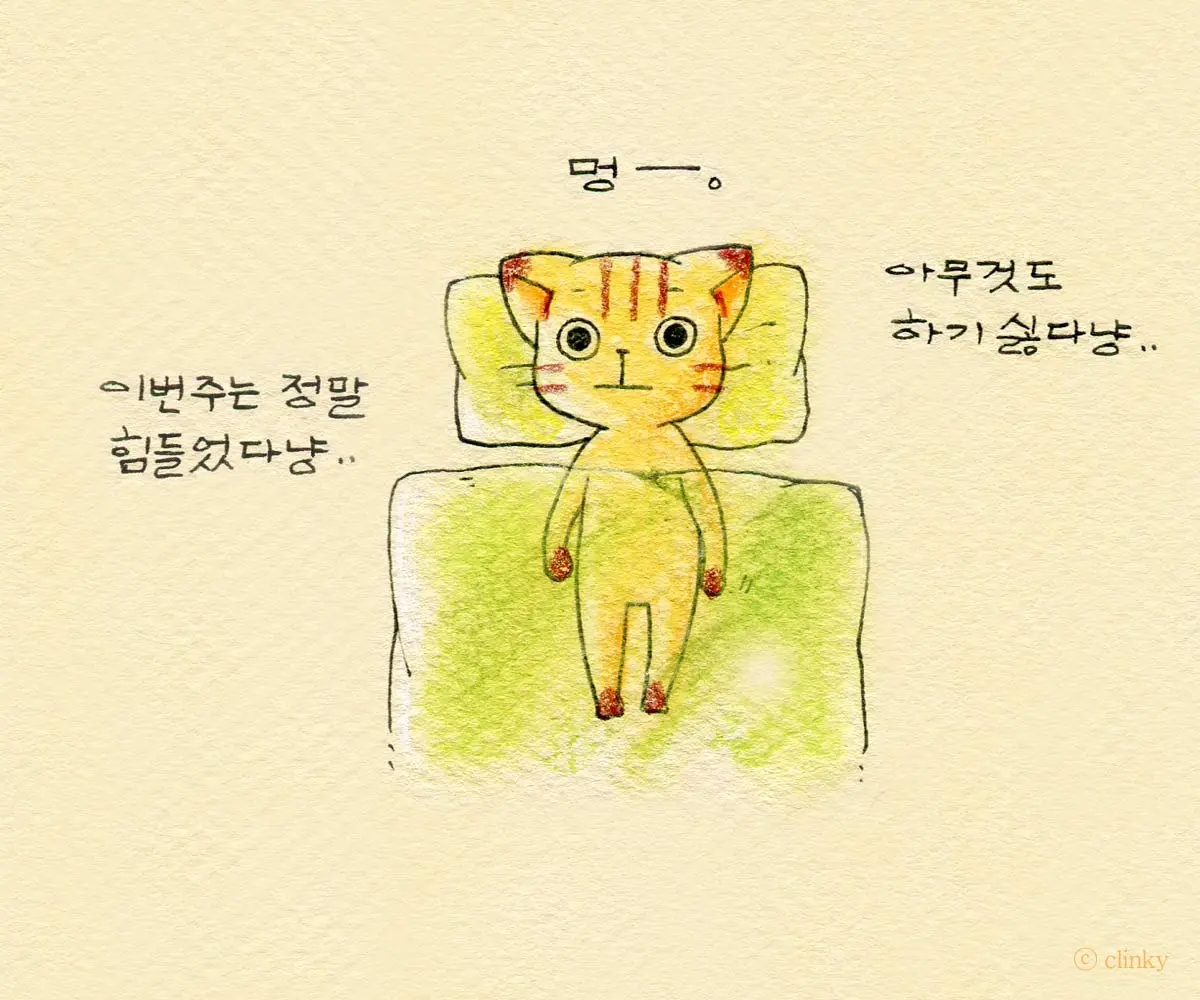 멍 ー。
이번주는 정말
힘들었다냥..
아무것도
하기 싫다냥..
ⓒ clinky